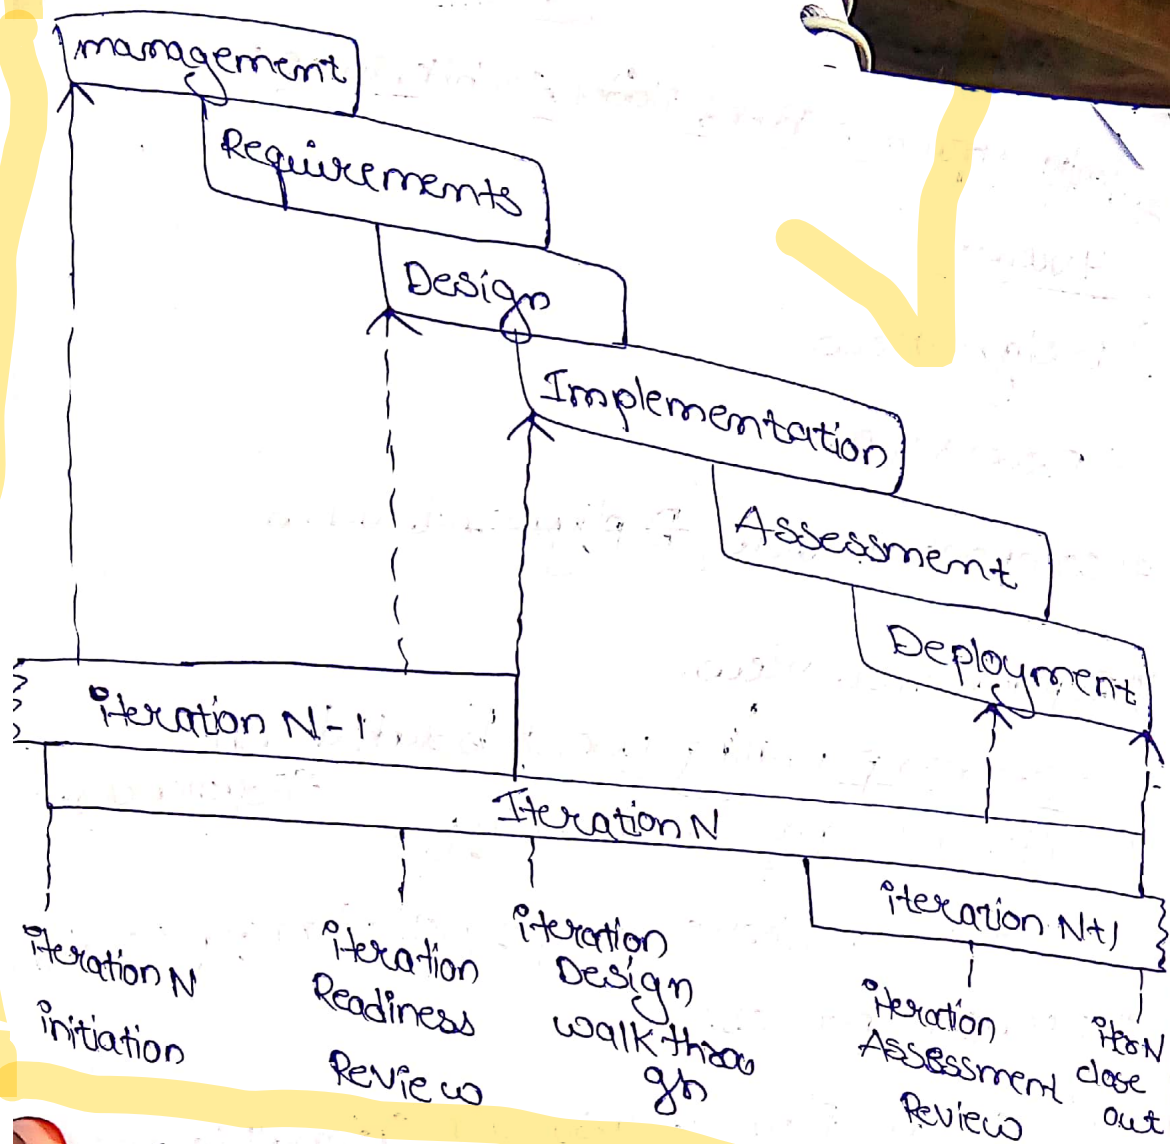 management
Requirements
Design
Implementation
Assessment
Deployment
iteration N-1
Iteration N
iteration N+1
iteration N
initiation
iteration
Readiness
Review
iteration
Design
walkthrou
gh
iteration
Assessment
Review
iter N
close
out